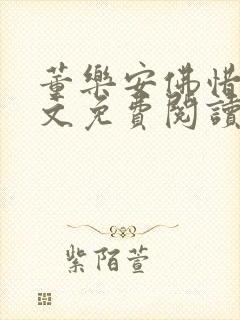 董樂安佛惜
文免費閱讀
紫陌萱